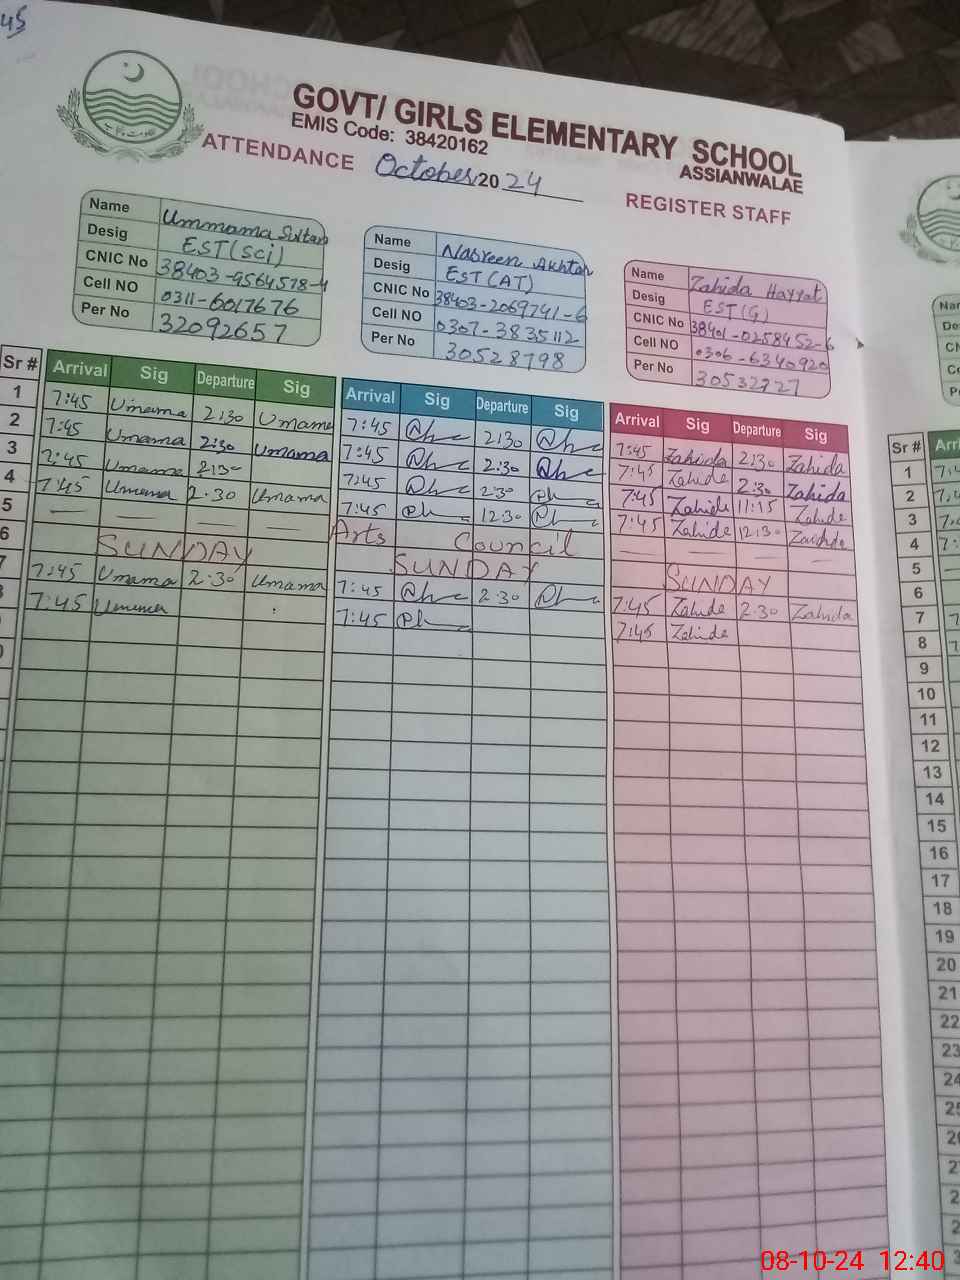 45
GOVT/ GIRLS ELEMENTARY SCHOOL
EMIS Code: 38420162
ASSIANWALAE
ATTENDANCE October 2024
REGISTER STAFF
Name Ummama Sultan
Desig EST(Sci)
CNIC No 38403-9564578-4
Cell NO 0311-6017676
Per No 32092657
Name Nasreen Akhtar
Desig EST(AT)
CNIC No 38403-2069741-6
Cell NO 0307-3835112
Per No 30528798
Name Zahida Hayyat
Desig EST(G)
CNIC No 38401-0258452-6
Cell NO 0306-6340920
Per No 30532727
Sr # Arrival Sig Departure Sig Arrival Sig Departure Sig Arrival Sig Departure Sig
1 7:45 Umama 2:30 Umama 7:45 2:30 7:45 Zahida 2:30 Zahida
2 7:45 Umama 2:30 Umama 7:45 2:30 7:45 Zahide 2:30 Zahida
3 7:45 Umama 2:30 7:45 2:30 7:45 Zahide 11:15 Zahide
4 7:45 Umama 2:30 Umama 7:45 12:30 7:45 Zahide 12:30 Zahide
5 — — — — Arts Council — — — —
6 SUNDAY SUNDAY SUNDAY
7 7:45 Umama 2:30 Umama 7:45 2:30 7:45 Zahide 2:30 Zahida
7:45 Umama 7:45 7:45 Zahide
Sr #
1
2
3
4
5
6
7
8
9
10
11
12
13
14
15
16
17
18
19
20
21
22
23
24
08-10-24 12:40